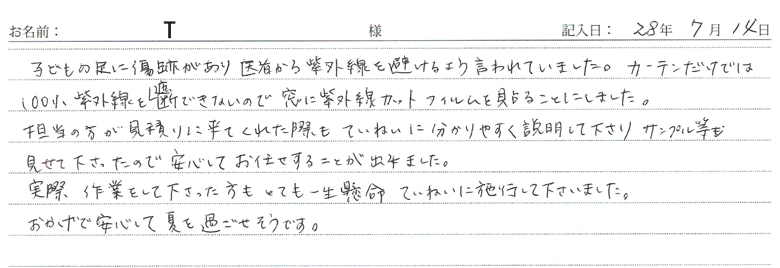 お名前： T 様 記入日： 28年 7月 14日
子どもの足に傷跡があり 医者から 紫外線を避けるよう言われていました。カーテンだけでは
100% 紫外線を遮断できないので 窓に紫外線カット フィルムを貼ることにしました。
担当の方が見積りに来てくれた際も ていねいに分かりやすく説明して下さり サンプル等も
見せて下さったので 安心して お任せすることが出来ました。
実際 作業をして下さった方も とても一生懸命 ていねいに施行して下さいました。
おかげで安心して 夏を過ごせそうです。